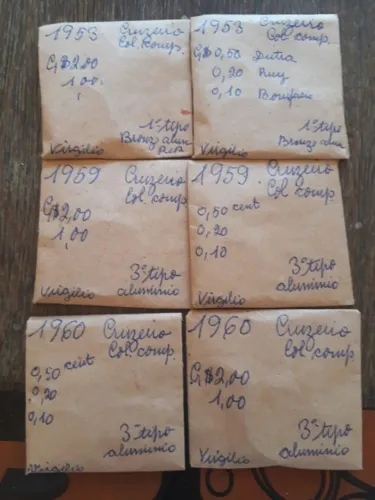 1953 Cruzeiro
Col. comp.
Cr$2,00
1,00
1º tipo
Bronz. alum
Virgilio
1953 Cruzeiro
Col. comp.
Cr$0,50 Dutra
0,20 Ruy
0,10 Bonifacio
1º tipo
Bronz. alum
Virgilio
1959 Cruzeiro
Col. comp
Cr$2,00
1,00
3º tipo
Virgilio aluminio
1959 Cruzeiro
Col. comp
0,50 cent
0,20
0,10
3º tipo
aluminio
Virgilio
1960 Cruzeiro
Col. comp.
0,50 cent
0,20
0,10
3º tipo
aluminio
Virgilio
1960 Cruzeiro
Col. comp
Cr$2,00
1,00
3º tipo
aluminio
Virgilio